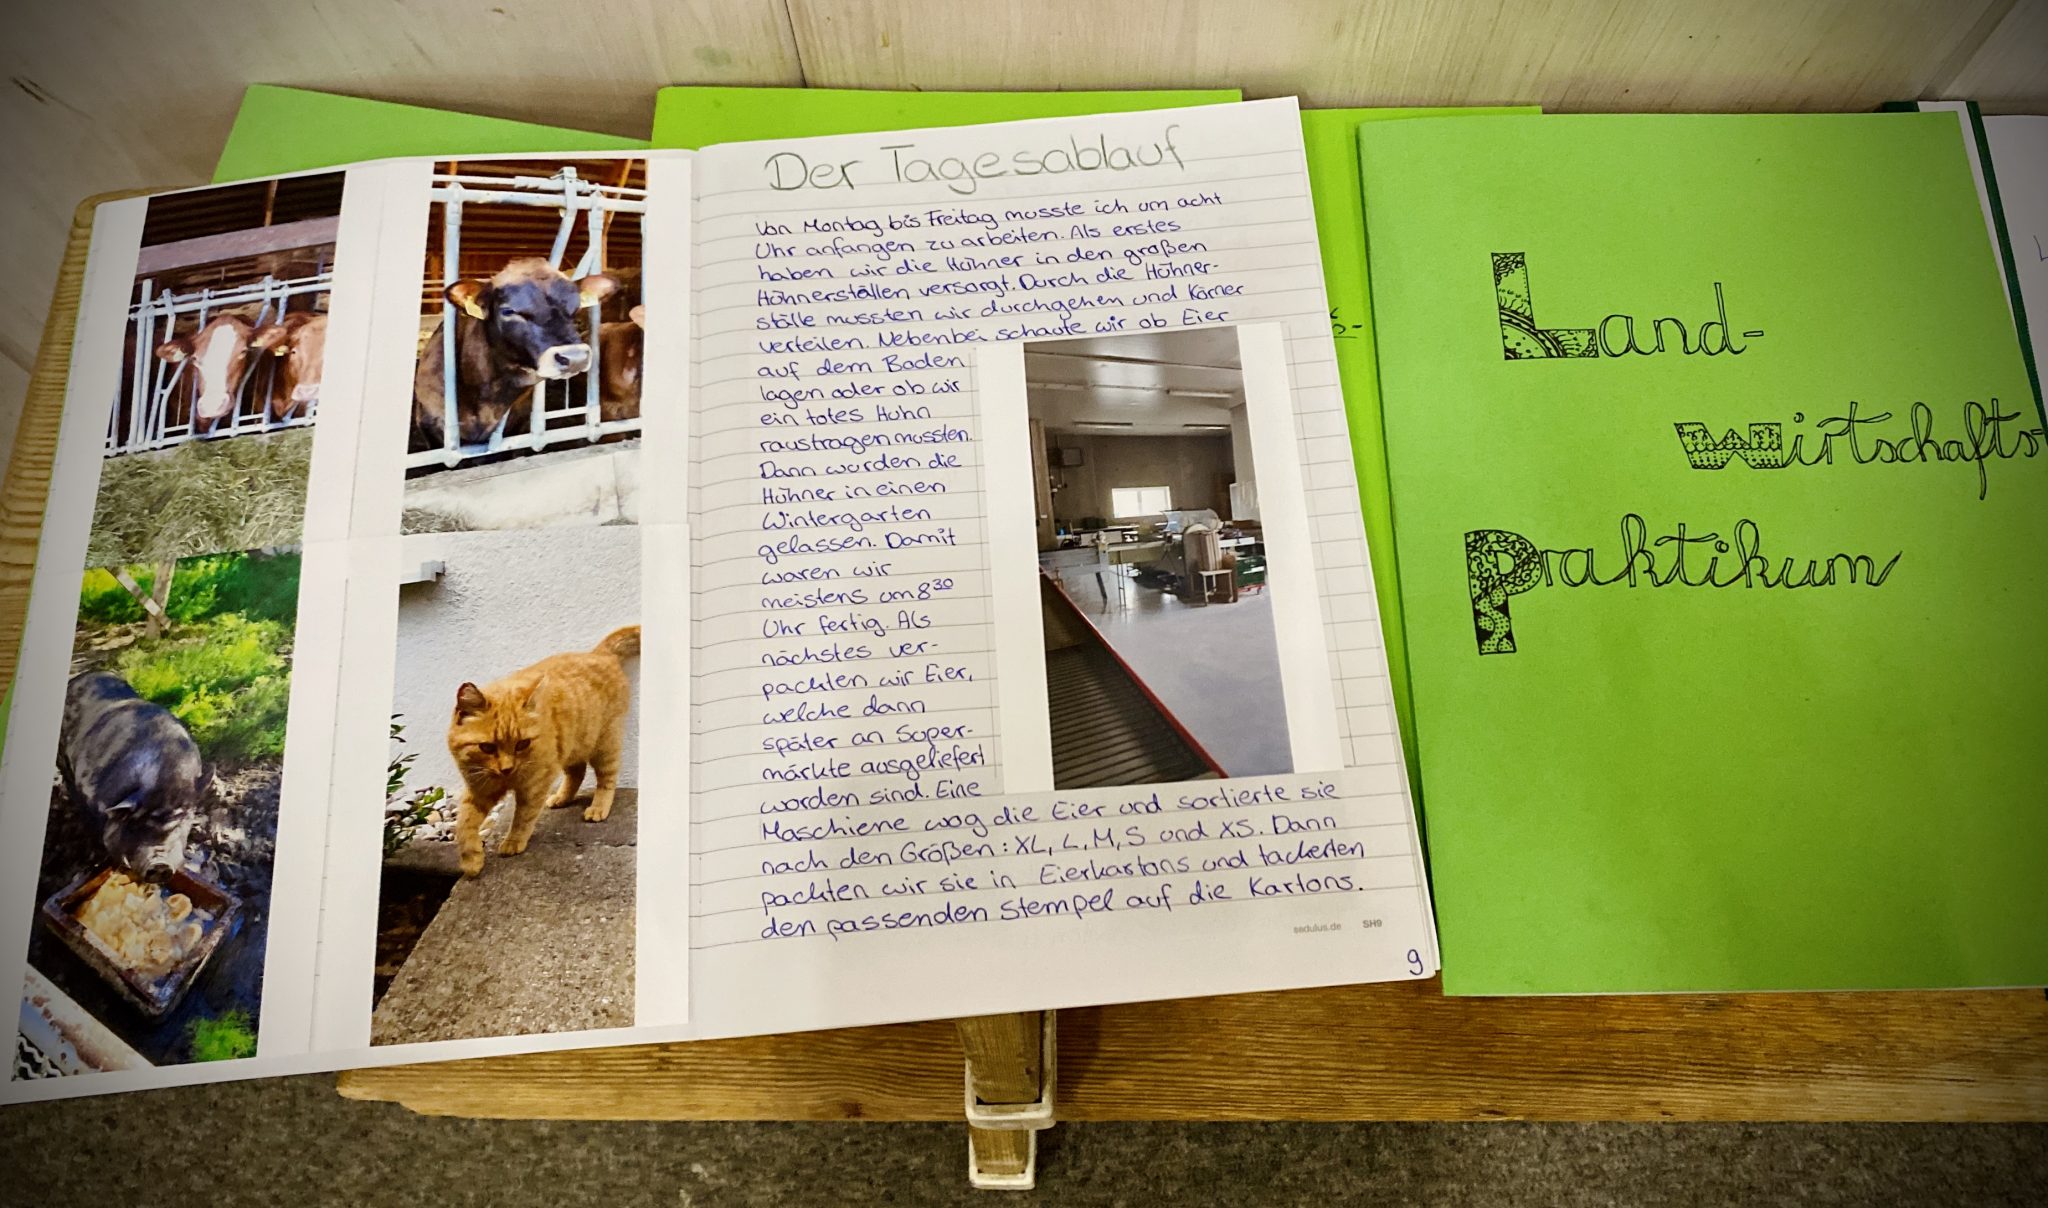 Der Tagesablauf
Von Montag bis Freitag musste ich um acht
Uhr anfangen zu arbeiten. Als erstes
haben wir die Hühner in den großen
Hühnerställen versorgt. Durch die Hühner-
ställe mussten wir durchgehen und Körner
verteilen. Nebenbei schaute wir ob Eier
auf dem Boden
lagen oder ob wir
ein totes Huhn
raustragen mussten.
Dann wurden die
Hühner in einen
Wintergarten
gelassen. Damit
waren wir
meistens um 8³⁰
Uhr fertig. Als
nächstes ver-
packten wir Eier,
welche dann
später an Super-
märkte ausgeliefert
worden sind. Eine
Maschiene wog die Eier und sortierte sie
nach den Größen: XL, L, M, S und XS. Dann
packten wir sie in Eierkartons und tackerten
den passenden Stempel auf die Kartons.
sedulus.de SH9
9
Land-
wirtschafts-
Praktikum